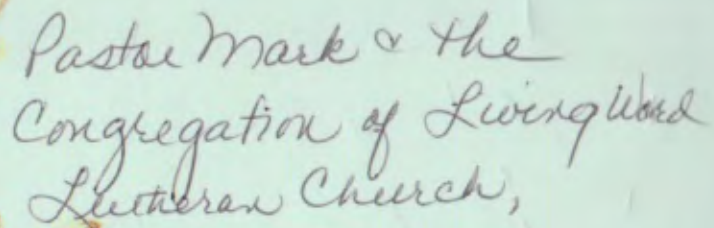 Pastor Mark & the
Congregation of Living Word
Lutheran Church,